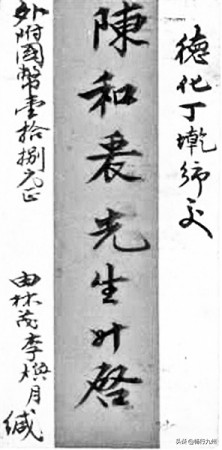 德化丁墘交
陳和先生升啓
外附國幣壹拾捌元正
由林茂李月緘
头条 @畅行九州